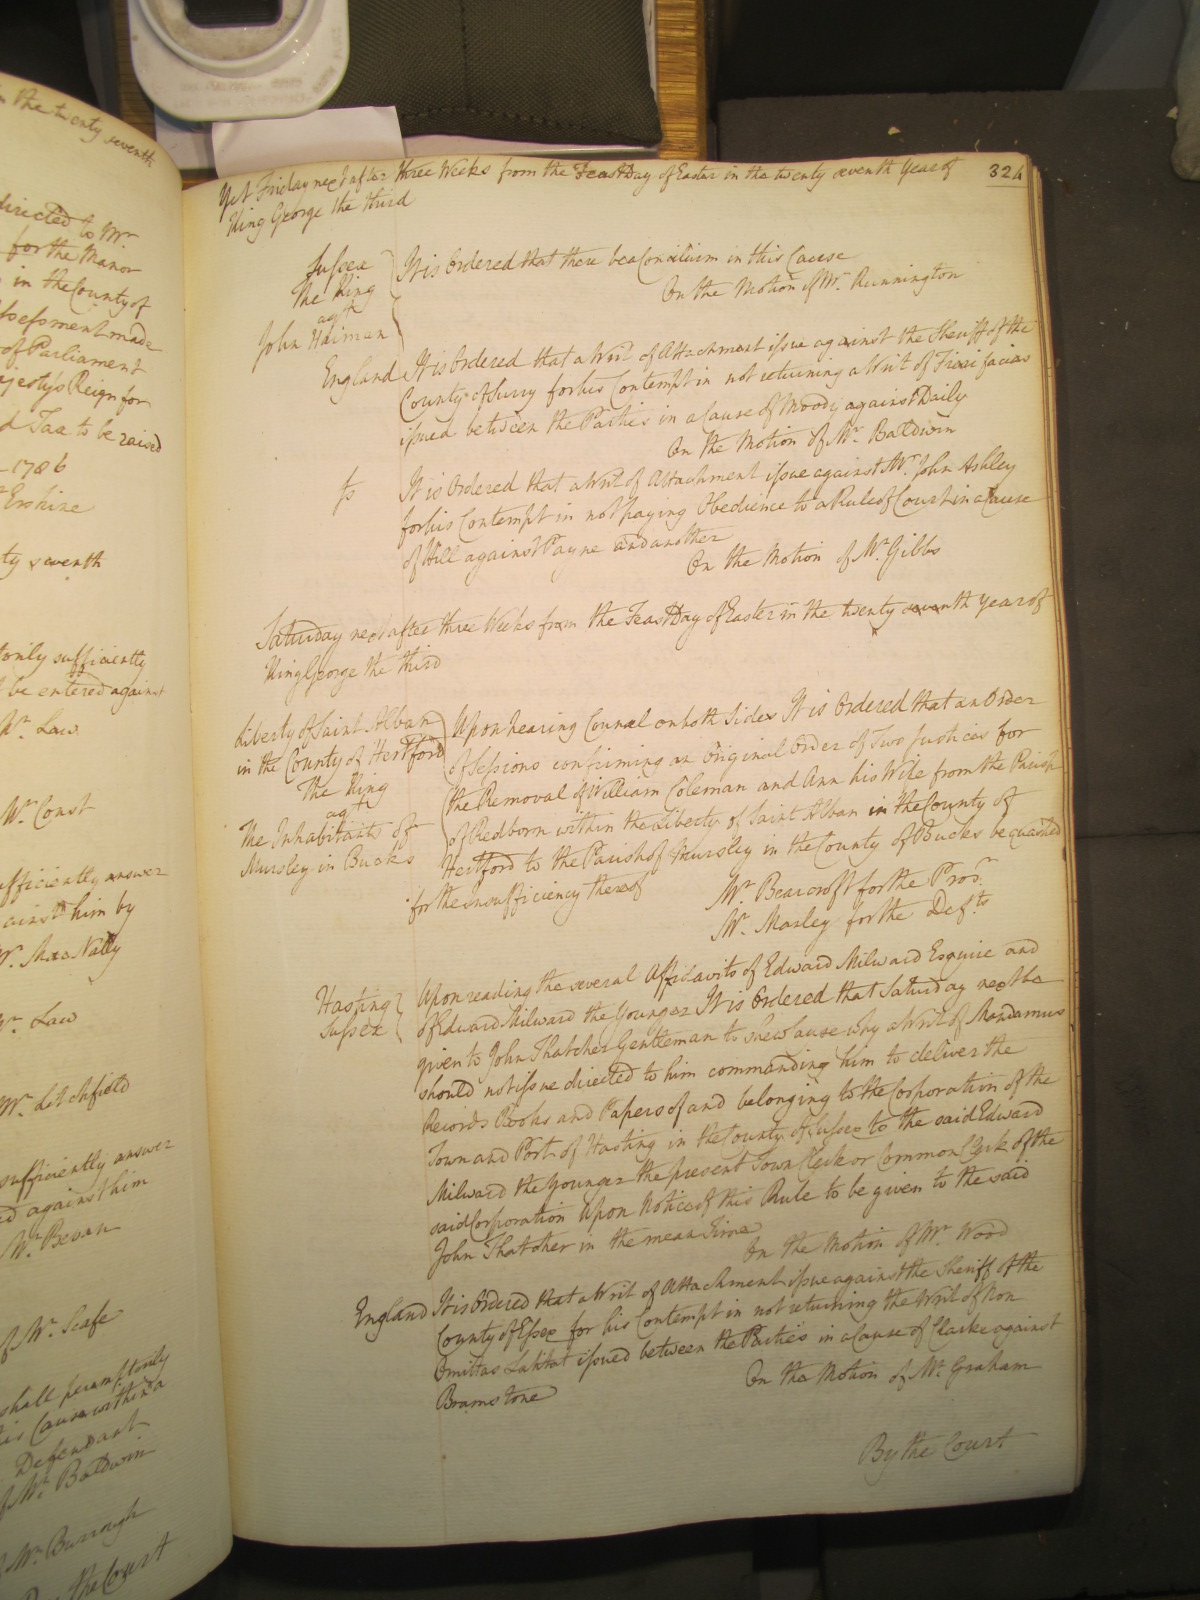 in the twenty seventh
directed to Mr
for the Manor
in the County of
Assessment made
of Parliament
Majesty's Reign for
Tax to be raised
1786
Erskine
ty seventh
torily sufficiently
be entered against
Mr. Law
Mr. Const
sufficiently answer
against him by
Mr. MacNally
Mr. Law
Mr. Litchfield
sufficiently answer
ed against him
Mr. Bevan
of Mr. Scafe
shall peremptorily
his Cause within a
Defendant
of Mr. Baldwin
Mr. Burrough
By the Court
Yet Friday next after three Weeks from the Feast Day of Easter in the twenty seventh Year of 324
King George the third
Sussex
The King
agt
John Haiman
It is Ordered that there be a Concilium in this Cause
On the Motion of Mr. Runnington
England It is Ordered that a Writ of Attachment issue against the Sheriff of the
County of Surry for his Contempt in not returning a Writ of Fieri facias
issued between the Parties in a Cause of Moody against Daily
On the Motion of Mr. Baldwin
fs It is Ordered that a Writ of Attachment issue against Mr. John Ashley
for his Contempt in not paying Obedience to a Rule of Court in a Cause
of Hill against Payne and another
On the Motion of Mr. Gibbs
Saturday next after three Weeks from the Feast Day of Easter in the twenty seventh Year of
King George the third
Liberty of Saint Alban
in the County of Hertford
The King
agt
The Inhabitants of
Mursley in Bucks
Upon hearing Counsel on both Sides It is Ordered that an Order
of Sessions confirming an Original Order of Two Justices for
the Removal of William Coleman and Ann his Wife from the Parish
of Redborn within the Liberty of Saint Alban in the County of
Hertford to the Parish of Mursley in the County of Bucks be quashed
for the Insufficiency thereof
Mr. Bearcroft for the Pros.
Mr. Masley for the Defts
Hasting
Sussex
Upon reading the several Affidavits of Edward Milward Esquire and
of Edward Milward the Younger It is Ordered that Saturday next be
given to John Thatcher Gentleman to shew Cause why a Writ of Mandamus
should not issue directed to him commanding him to deliver the
Records Books and Papers of and belonging to the Corporation of the
Town and Port of Hasting in the County of Sussex to the said Edward
Milward the Younger the present Town Clerk or Common Clerk of the
said Corporation Upon Notice of this Rule to be given to the said
John Thatcher in the mean Time
On the Motion of Mr. Wood
England It is Ordered that a Writ of Attachment issue against the Sheriff of the
County of Essex for his Contempt in not returning the Writ of Non
Omittas Latitat issued between the Parties in a Cause of Clarke against
Bramstone
On the Motion of Mr. Graham
By the Court